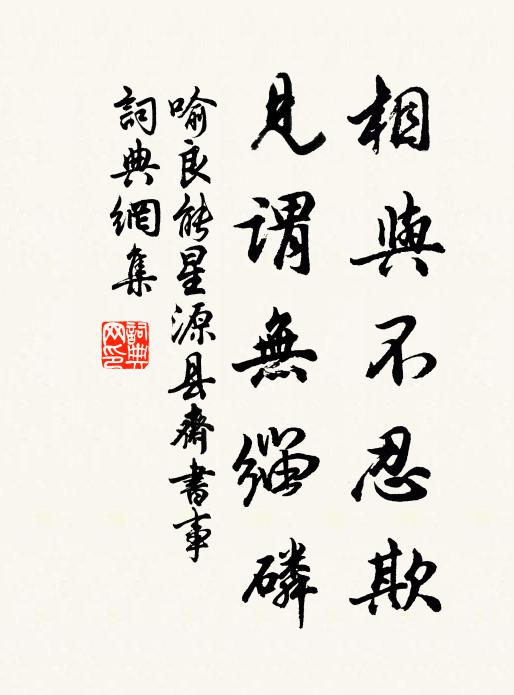 相與不忍欺
見謂無緇磷
喻良能星源县齋書事
詞典網集
詞典网印